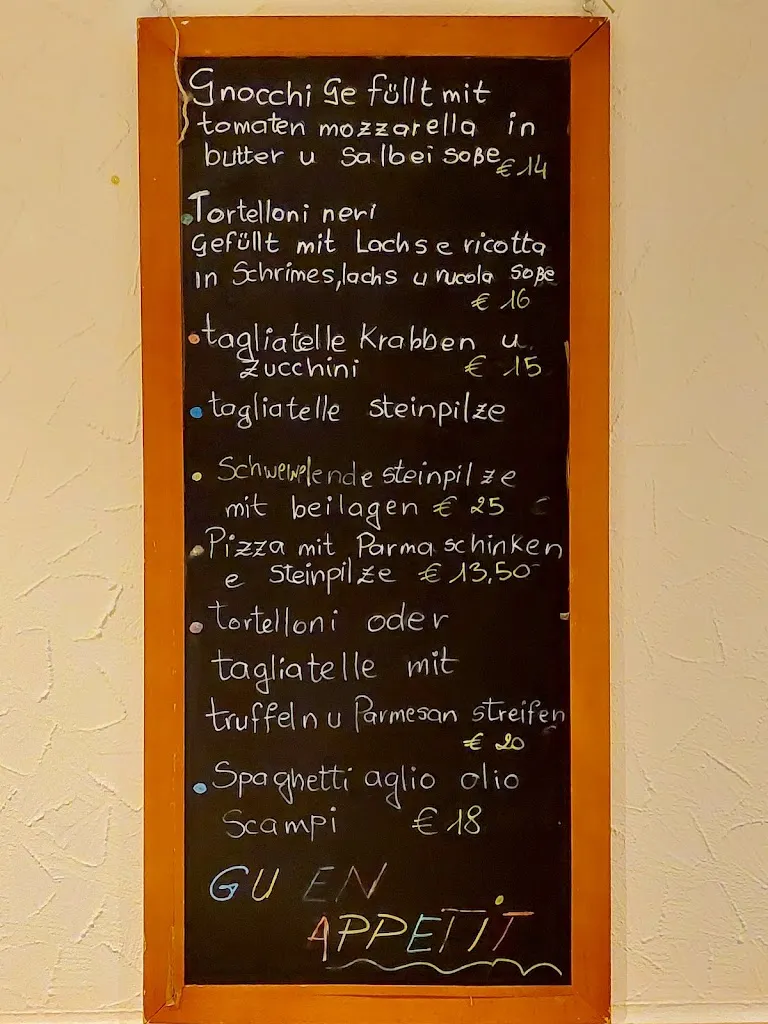 Gnocchi Ge füllt mit
tomaten mozzarella in
butter u Salbei soße € 14
Tortelloni neri
gefüllt mit Lachs e ricotta
in Schrimes, lachs u rucola soße
€ 16
tagliatelle Krabben u.
zucchini € 15
tagliatelle steinpilze
steinpilze
mit beilagen € 25
Pizza mit Parma schinken
e steinpilze € 13,50
tortelloni oder
tagliatelle mit
truffeln u Parmesan streifen
€ 20
Spaghetti aglio olio
Scampi € 18
GU EN
APPETIT